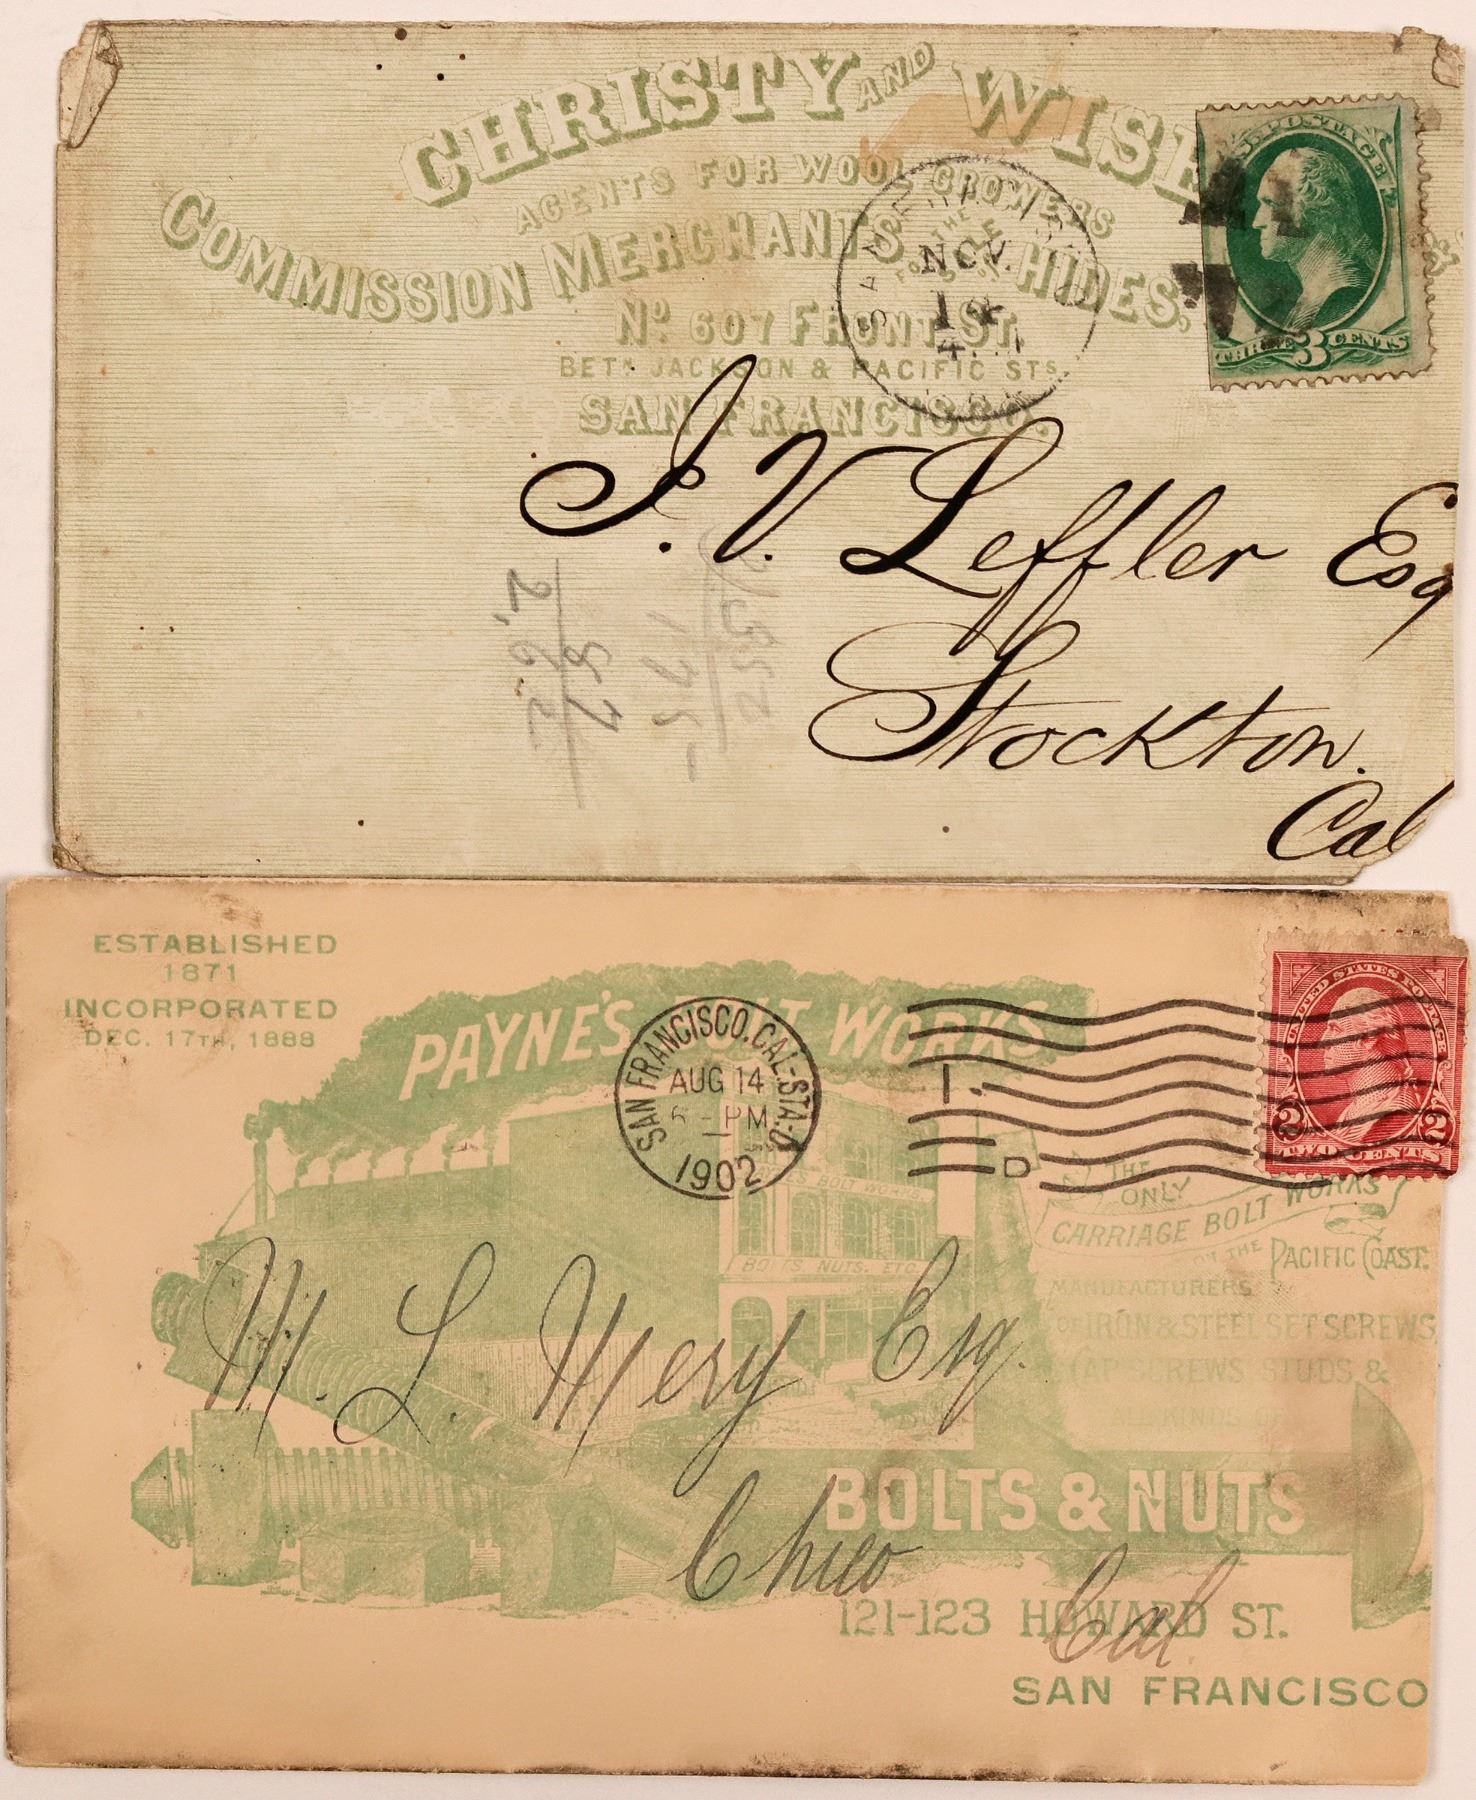 CHRISTY AND WISE
AGENTS FOR WOOL GROWERS
COMMISSION MERCHANTS
THE
HIDES,
&
No. 607 FRONT ST.
BETN. JACKSON & PACIFIC STS.
SAN FRANCISCO.
SAN FRANCISCO
NOV.
14
U.S. POSTAGE
THREE 3 CENTS
I. V. Leffler Esq
Stockton.
Cal
175-
87
2,62
ESTABLISHED
1871
INCORPORATED
DEC. 17TH, 1888
PAYNE'S BOLT WORKS.
SAN FRANCISCO, CAL.-STA-D
AUG 14
6-PM
1902
1
D
UNITED STATES POSTAGE
2 2
TWO CENTS
PAYNE'S BOLT WORKS.
BOLTS, NUTS, ETC.
THE
ONLY
CARRIAGE BOLT WORKS
ON THE PACIFIC COAST.
MANUFACTURERS
OF IRON & STEEL SET SCREWS
CAP SCREWS, STUDS, &
ALL KINDS OF
BOLTS & NUTS
M. L. Mery Esq.
Chico
Cal.
121-123 HOWARD ST.
SAN FRANCISCO